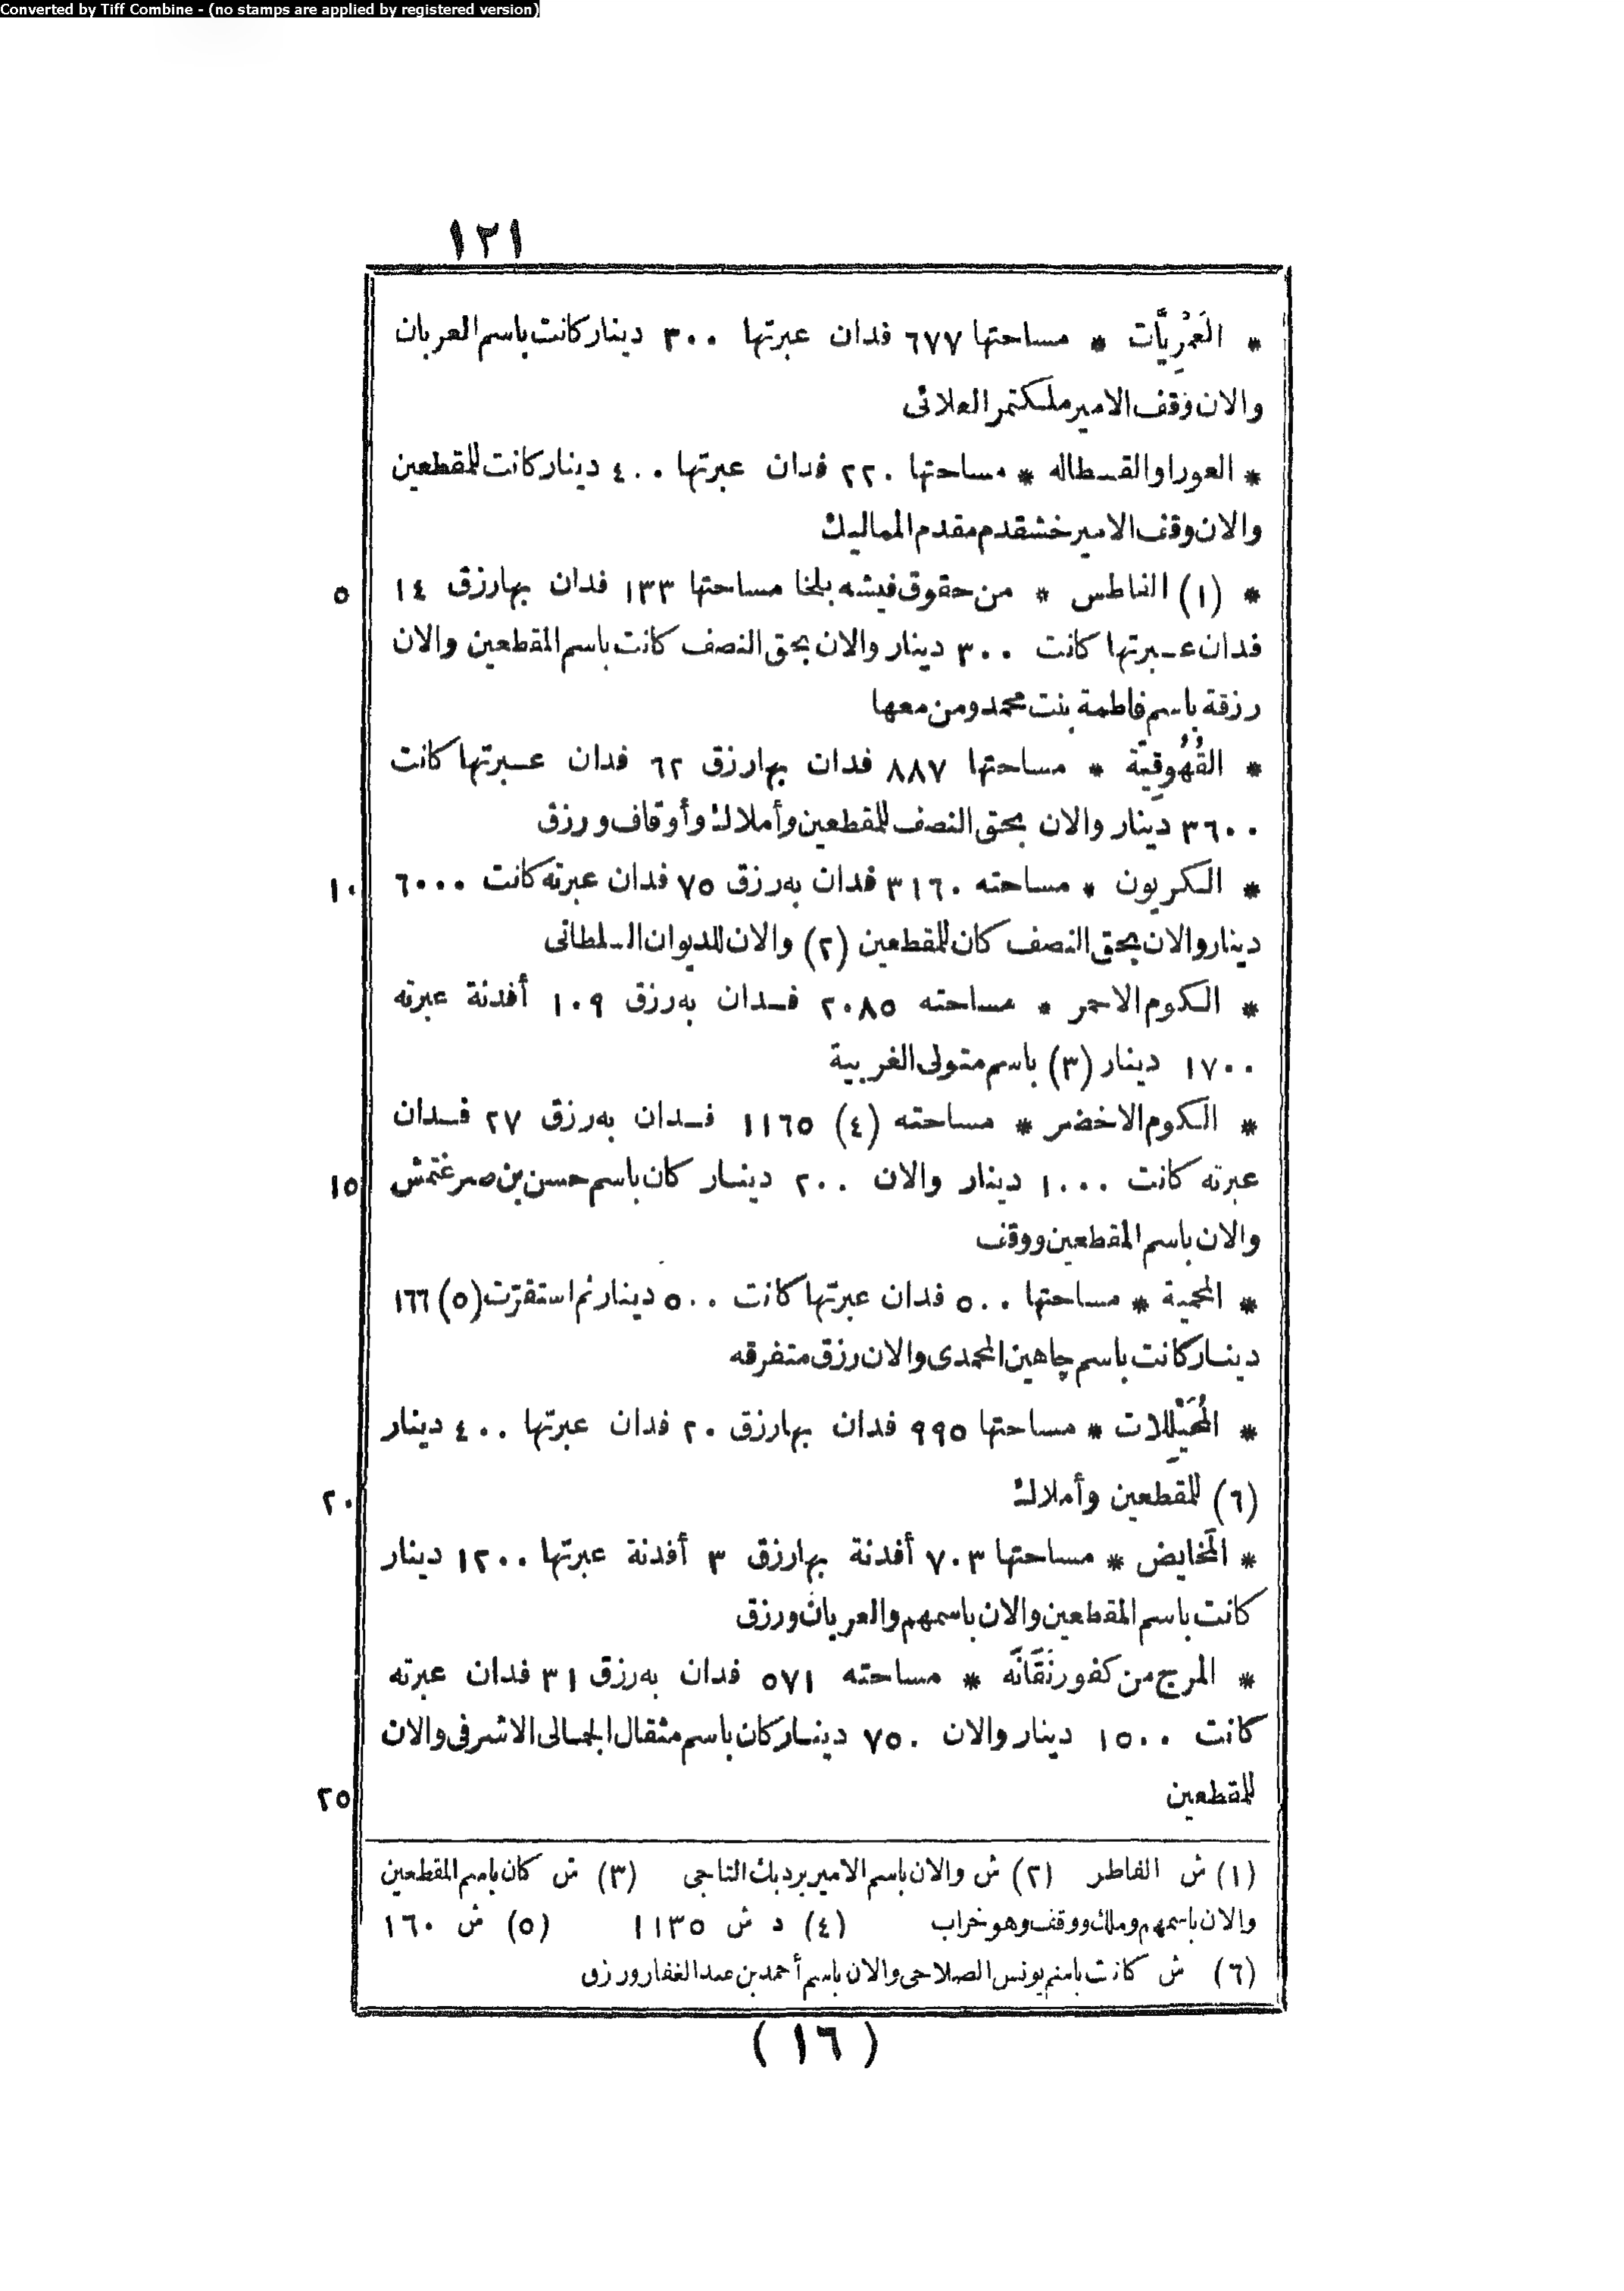 Converted by Tiff Combine - (no stamps are applied by registered version)
١٢١
* العَمْرِيَّات * مساحتها ٦٧٧ فدان عبرتها ٣٠٠ دينار كانت باسم العربان
والان وقف الامير ملكتمر العلائى
* العورا والقسطاله * مساحتها ٢٢٠ فدان عبرتها ٤٠٠ دينار كانت للمقطعين
والان وقف الامير خشقدم مقدم المماليك
* (١) الفاطس * من حقوق فيشه بلخا مساحتها ١٣٣ فدان بها رزق ١٤
٥
فدان عبرتها كانت ٣٠٠ دينار والان بحق النصف كانت باسم المقطعين والان
رزقة باسم فاطمة بنت محمد ومن معها
* القُهُوقِيَّة * مساحتها ٨٨٧ فدان بها رزق ٦٢ فدان عبرتها كانت
٣٦٠٠ دينار والان بحق النصف للمقطعين وأملاك وأوقاف ورزق
* الكريون * مساحته ٣١٦٠ فدان به رزق ٧٥ فدان عبرته كانت ٦٠٠٠
١٠
دينار والان بحق النصف كان للمقطعين (٢) والان للديوان السلطانى
* الكوم الاحمر * مساحته ٢٠٨٥ فدان به رزق ١٠٩ أفدنة عبرته
١٧٠٠ دينار (٣) باسم متولى الغربية
* الكوم الاخضر * مساحته (٤) ١١٦٥ فدان به رزق ٢٧ فدان
عبرته كانت ١٠٠٠ دينار والان ٢٠٠ دينار كان باسم حسن بن صرغتمش
١٥
والان باسم المقطعين ووقف
* المحمية * مساحتها ٥٠٠ فدان عبرتها كانت ٥٠٠ دينار ثم استقرّت (٥) ١٦٦
دينار كانت باسم جاهين المحمدى والان رزق متفرقه
* المُحَيْلِلات * مساحتها ٩٩٥ فدان بها رزق ٢٠ فدان عبرتها ٤٠٠ دينار
(٦) للمقطعين وأملاك
٢٠
* المَخايض * مساحتها ٧٠٣ أفدنة بها رزق ٣ أفدنة عبرتها ١٢٠٠ دينار
كانت باسم المقطعين والان باسمهم والعربان ورزق
* المرج من كفور نَقَانَه * مساحته ٥٧١ فدان به رزق ٣١ فدان عبرته
كانت ١٥٠٠ دينار والان ٧٥٠ دينار كان باسم مثقال الجمالى الاشرفى والان
للمقطعين
٢٥
(١) ش الفاطر (٢) ش والان باسم الامير برد بك التاجى (٣) ش كان باسم المقطعين
والان باسمهم وملك ووقف وهو خراب (٤) د ش ١١٣٥ (٥) ش ١٦٠
(٦) ش كانت باسم يونس الصلاحى والان باسم أحمد بن عبد الغفار ورزق
(١٦)